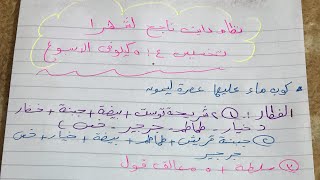 نظام دايت نابع لشهرا
تخسيس ٤:٥ كيلو في الاسبوع
* كوب ماء عليها عصرة ليمونه
الفطار: ① ٢ شريحة توست + بيضة + جبنة + خضار
( خيار - طماطم - جرجير - خس )
② جبنة قريش + طماطم + بيضة + خيار + خس
جرجير
③ سلطة + ٥ معالق فول